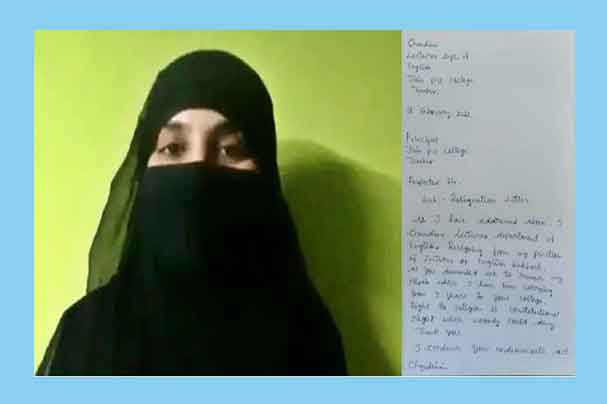 Chandini
Lecturer Dept. of
English
Jain P.U College
Tumkur.
February
Principal
Jain P.U College
Tumkur
Respected Sir.
Sub:- Resignation Letter
As I have addressed above. I
Chandini Lecturer department of
English Resigning from my position
of Lecturer of English Subject.
As you demanded me to remove my
Hijab which I have been wearing
from 3 years In your college.
Right to religion is constitutional
Right which nobody could deny
Thank you
I condemn your undemocratic act.
Chandini